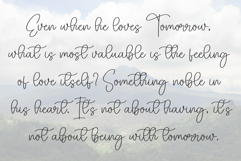 Even when he loves Tomorrow,
what is most valuable is the feeling
of love itself? Something noble in
his heart. It's not about having, it's
not about being with tomorrow.